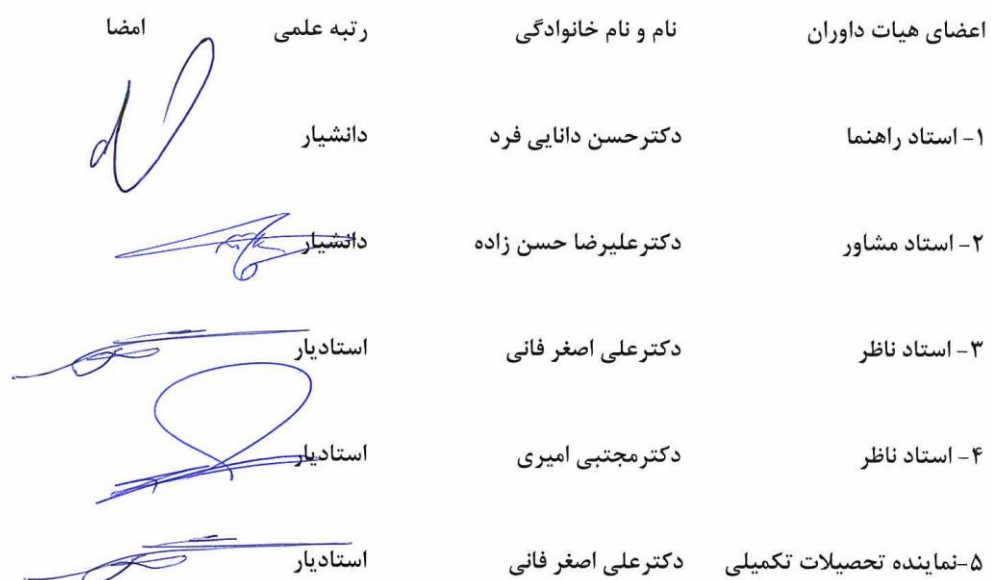 اعضای هیات داوران نام و نام خانوادگی رتبه علمی امضا
۱- استاد راهنما دکترحسن دانایی فرد دانشیار
۲- استاد مشاور دکترعلیرضا حسن زاده دانشیار
۳- استاد ناظر دکترعلی اصغر فانی استادیار
۴- استاد ناظر دکترمجتبی امیری استادیار
۵-نماینده تحصیلات تکمیلی دکترعلی اصغر فانی استادیار